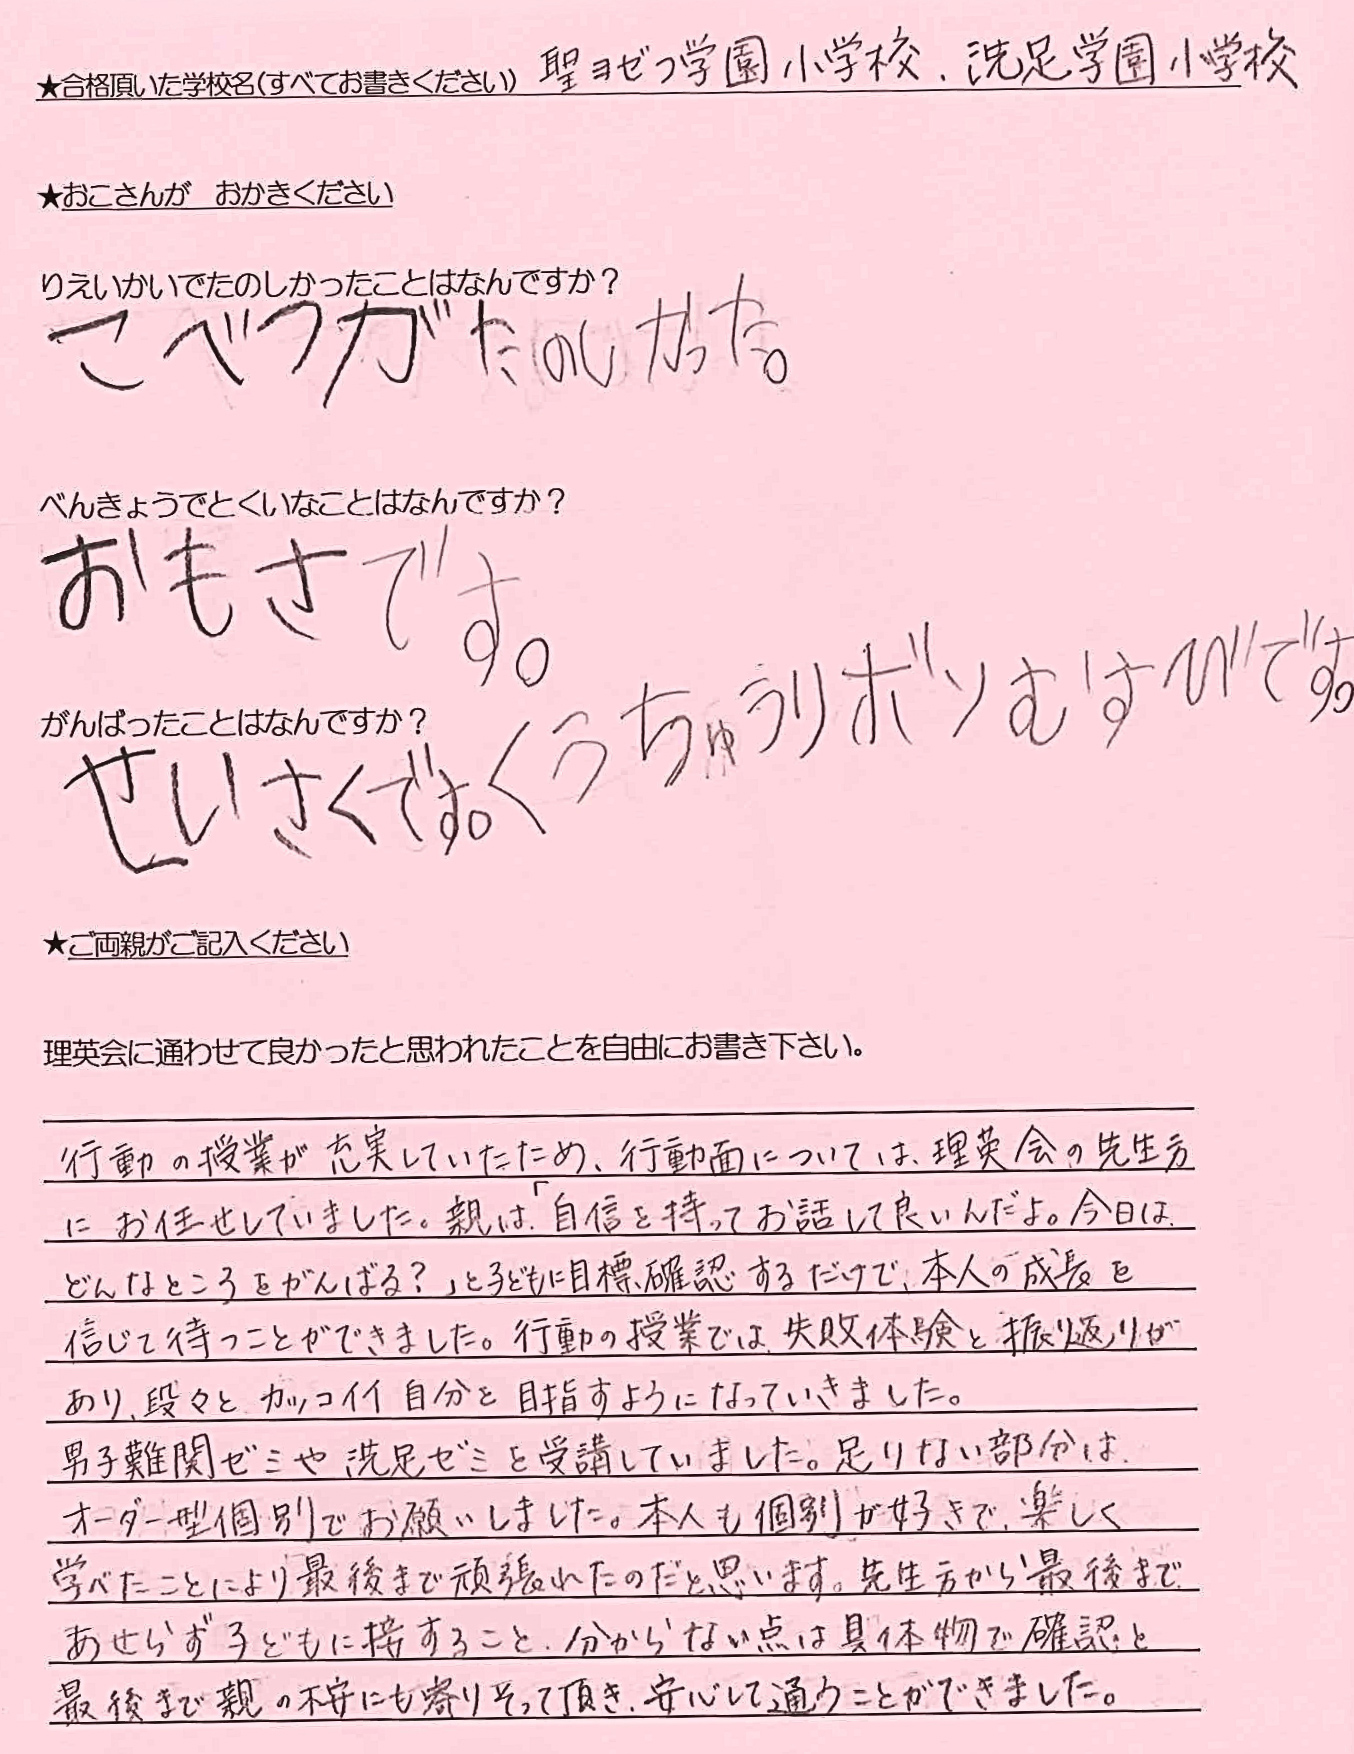 ★合格頂いた学校名(すべてお書きください) 聖ヨゼフ学園小学校、洗足学園小学校
★おこさんが　おかきください
りえいかいでたのしかったことはなんですか？
こべつがたのしかった。
べんきょうでとくいなことはなんですか？
おもさです。
がんばったことはなんですか？
せいさくです。くうちゅうリボンむすびです。
★ご両親がご記入ください
理英会に通わせて良かったと思われたことを自由にお書き下さい。
行動の授業が充実していたため、行動面については、理英会の先生方
にお任せしていました。親は、「自信を持ってお話して良いんだよ。今日は、
どんなところをがんばる？」と子どもに目標、確認するだけで、本人の成長を
信じて待つことができました。行動の授業では、失敗体験と振り返りが
あり、段々と、カッコイイ自分を目指すようになっていきました。
男子難関ゼミや洗足ゼミを受講していました。足りない部分は、
オーダー型個別でお願いしました。本人も個別が好きで、楽しく
学べたことにより最後まで頑張れたのだと思います。先生方から最後まで、
あせらず子どもに接すること、分からない点は具体物で確認と
最後まで親の不安にも寄りそって頂き、安心して通うことができました。